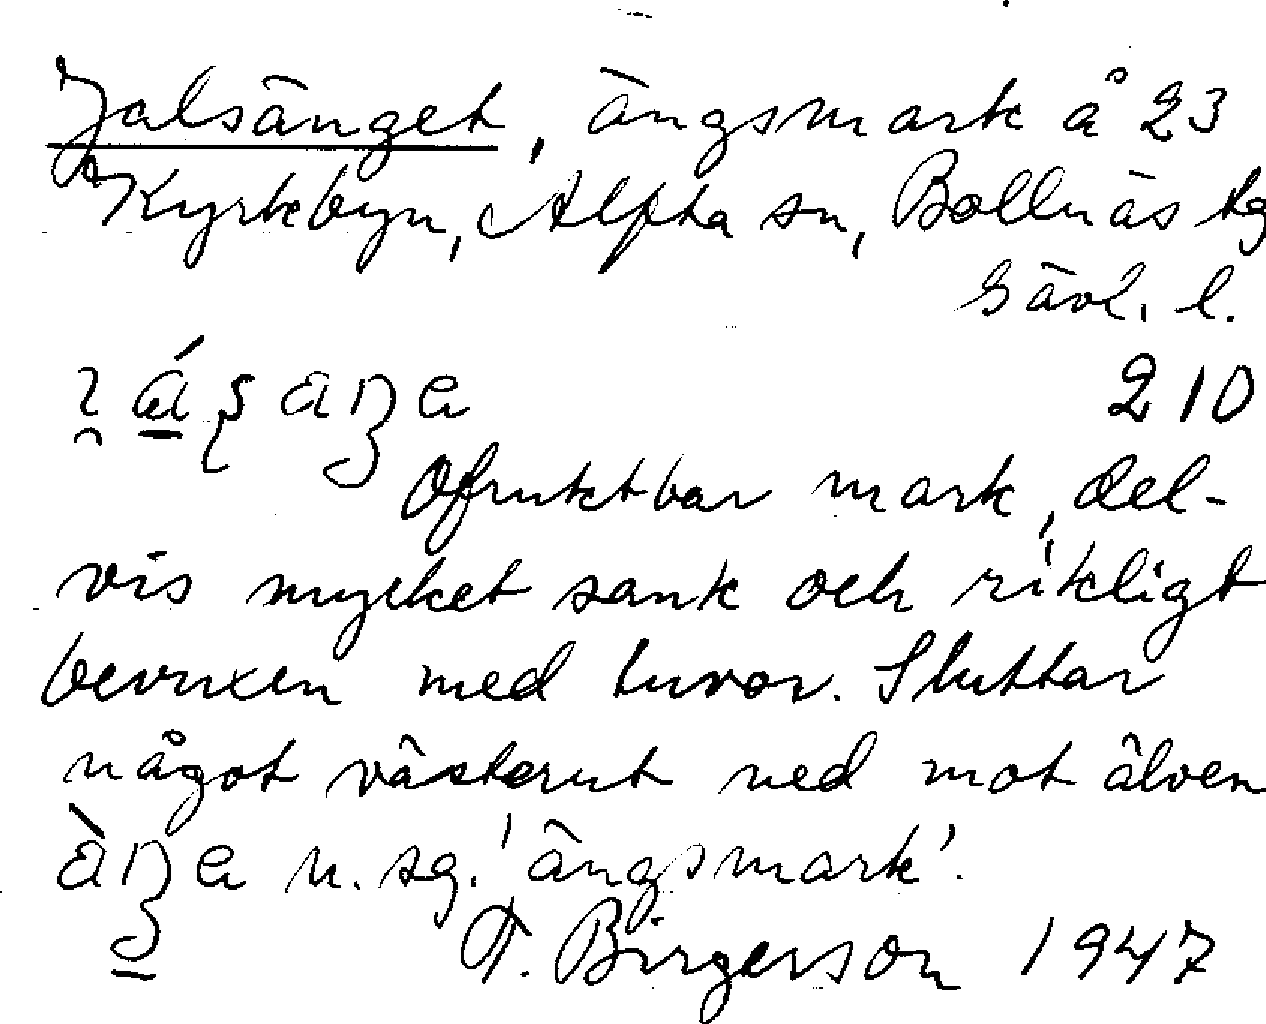 Jalsänget, ängsmark å 23
Kyrkbyn, Alfta sn, Bollnäs tg
Gävl. l.
210
Ofruktbar mark, del-
vis mycket sank och rikligt
bevuxen med tuvor. Sluttar
något västerut ned mot älven
n. sg. 'ängsmark'.
T. Birgerson 1947